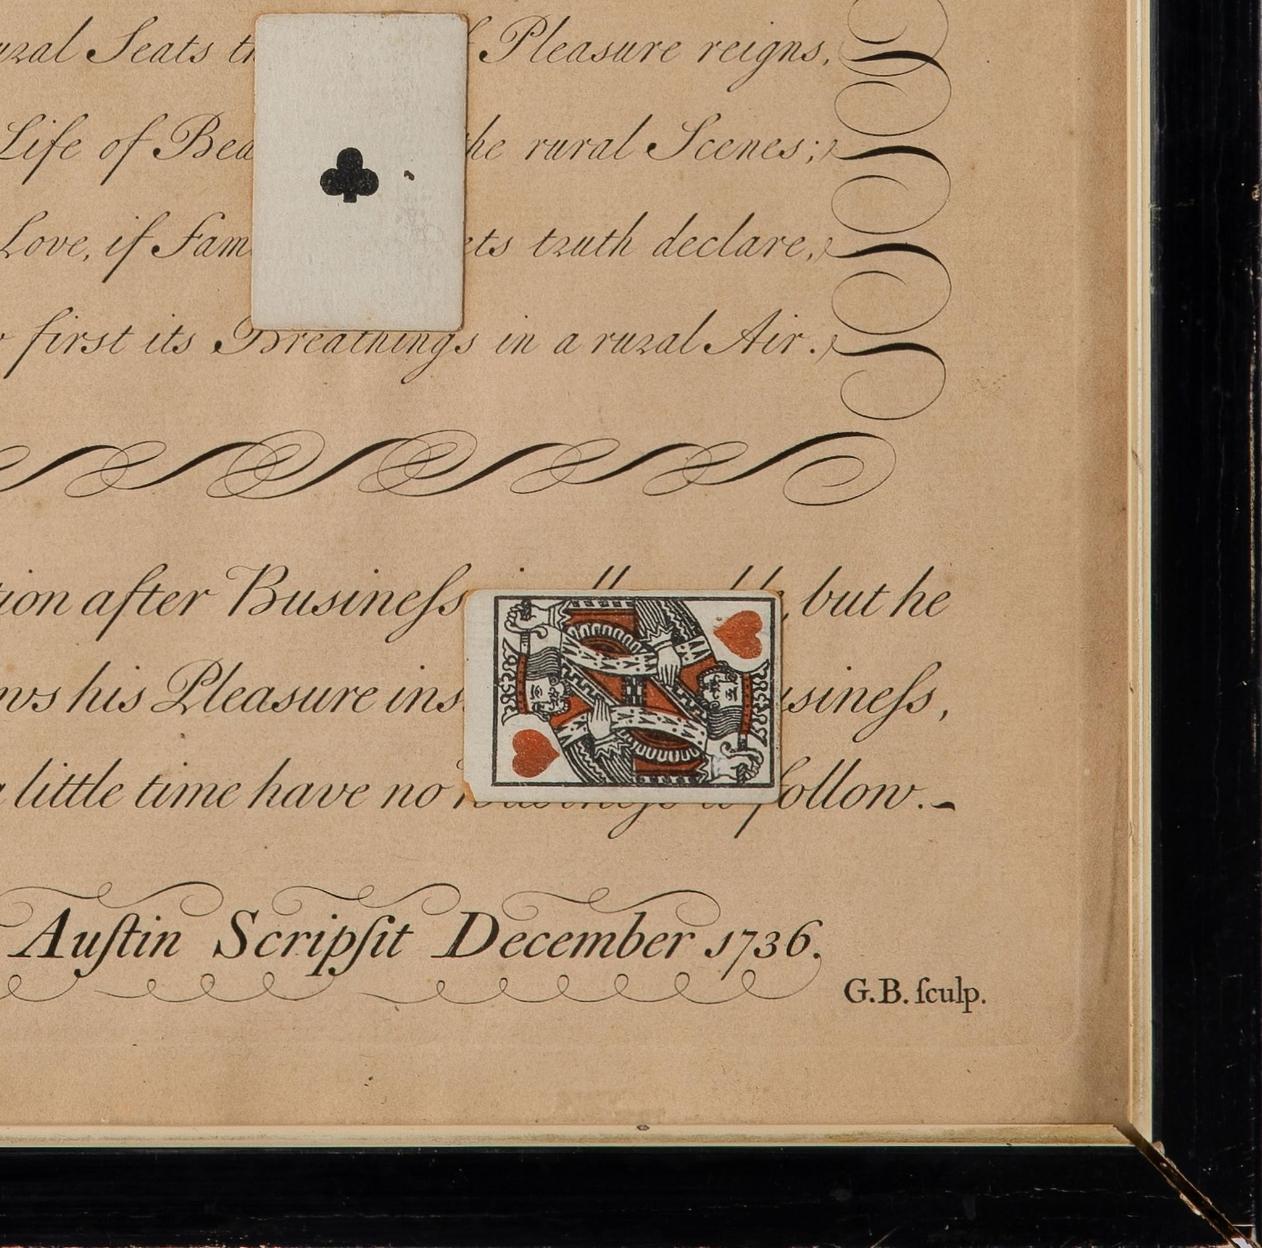 Seats Pleasure reigns,
Life of the rural Scenes;
Love, if truth declare,
first its Breathings in a rural Air.
after Buſineſs but he
his Pleasure
little time have no follow.
Auſtin Scripſit December 1736.
G.B. ſculp.